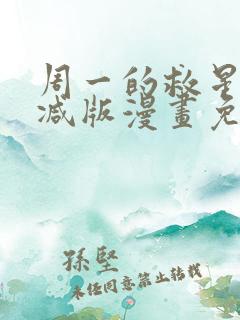 周一的救星
减版漫畫免
孫堅
未任同意禁止转载